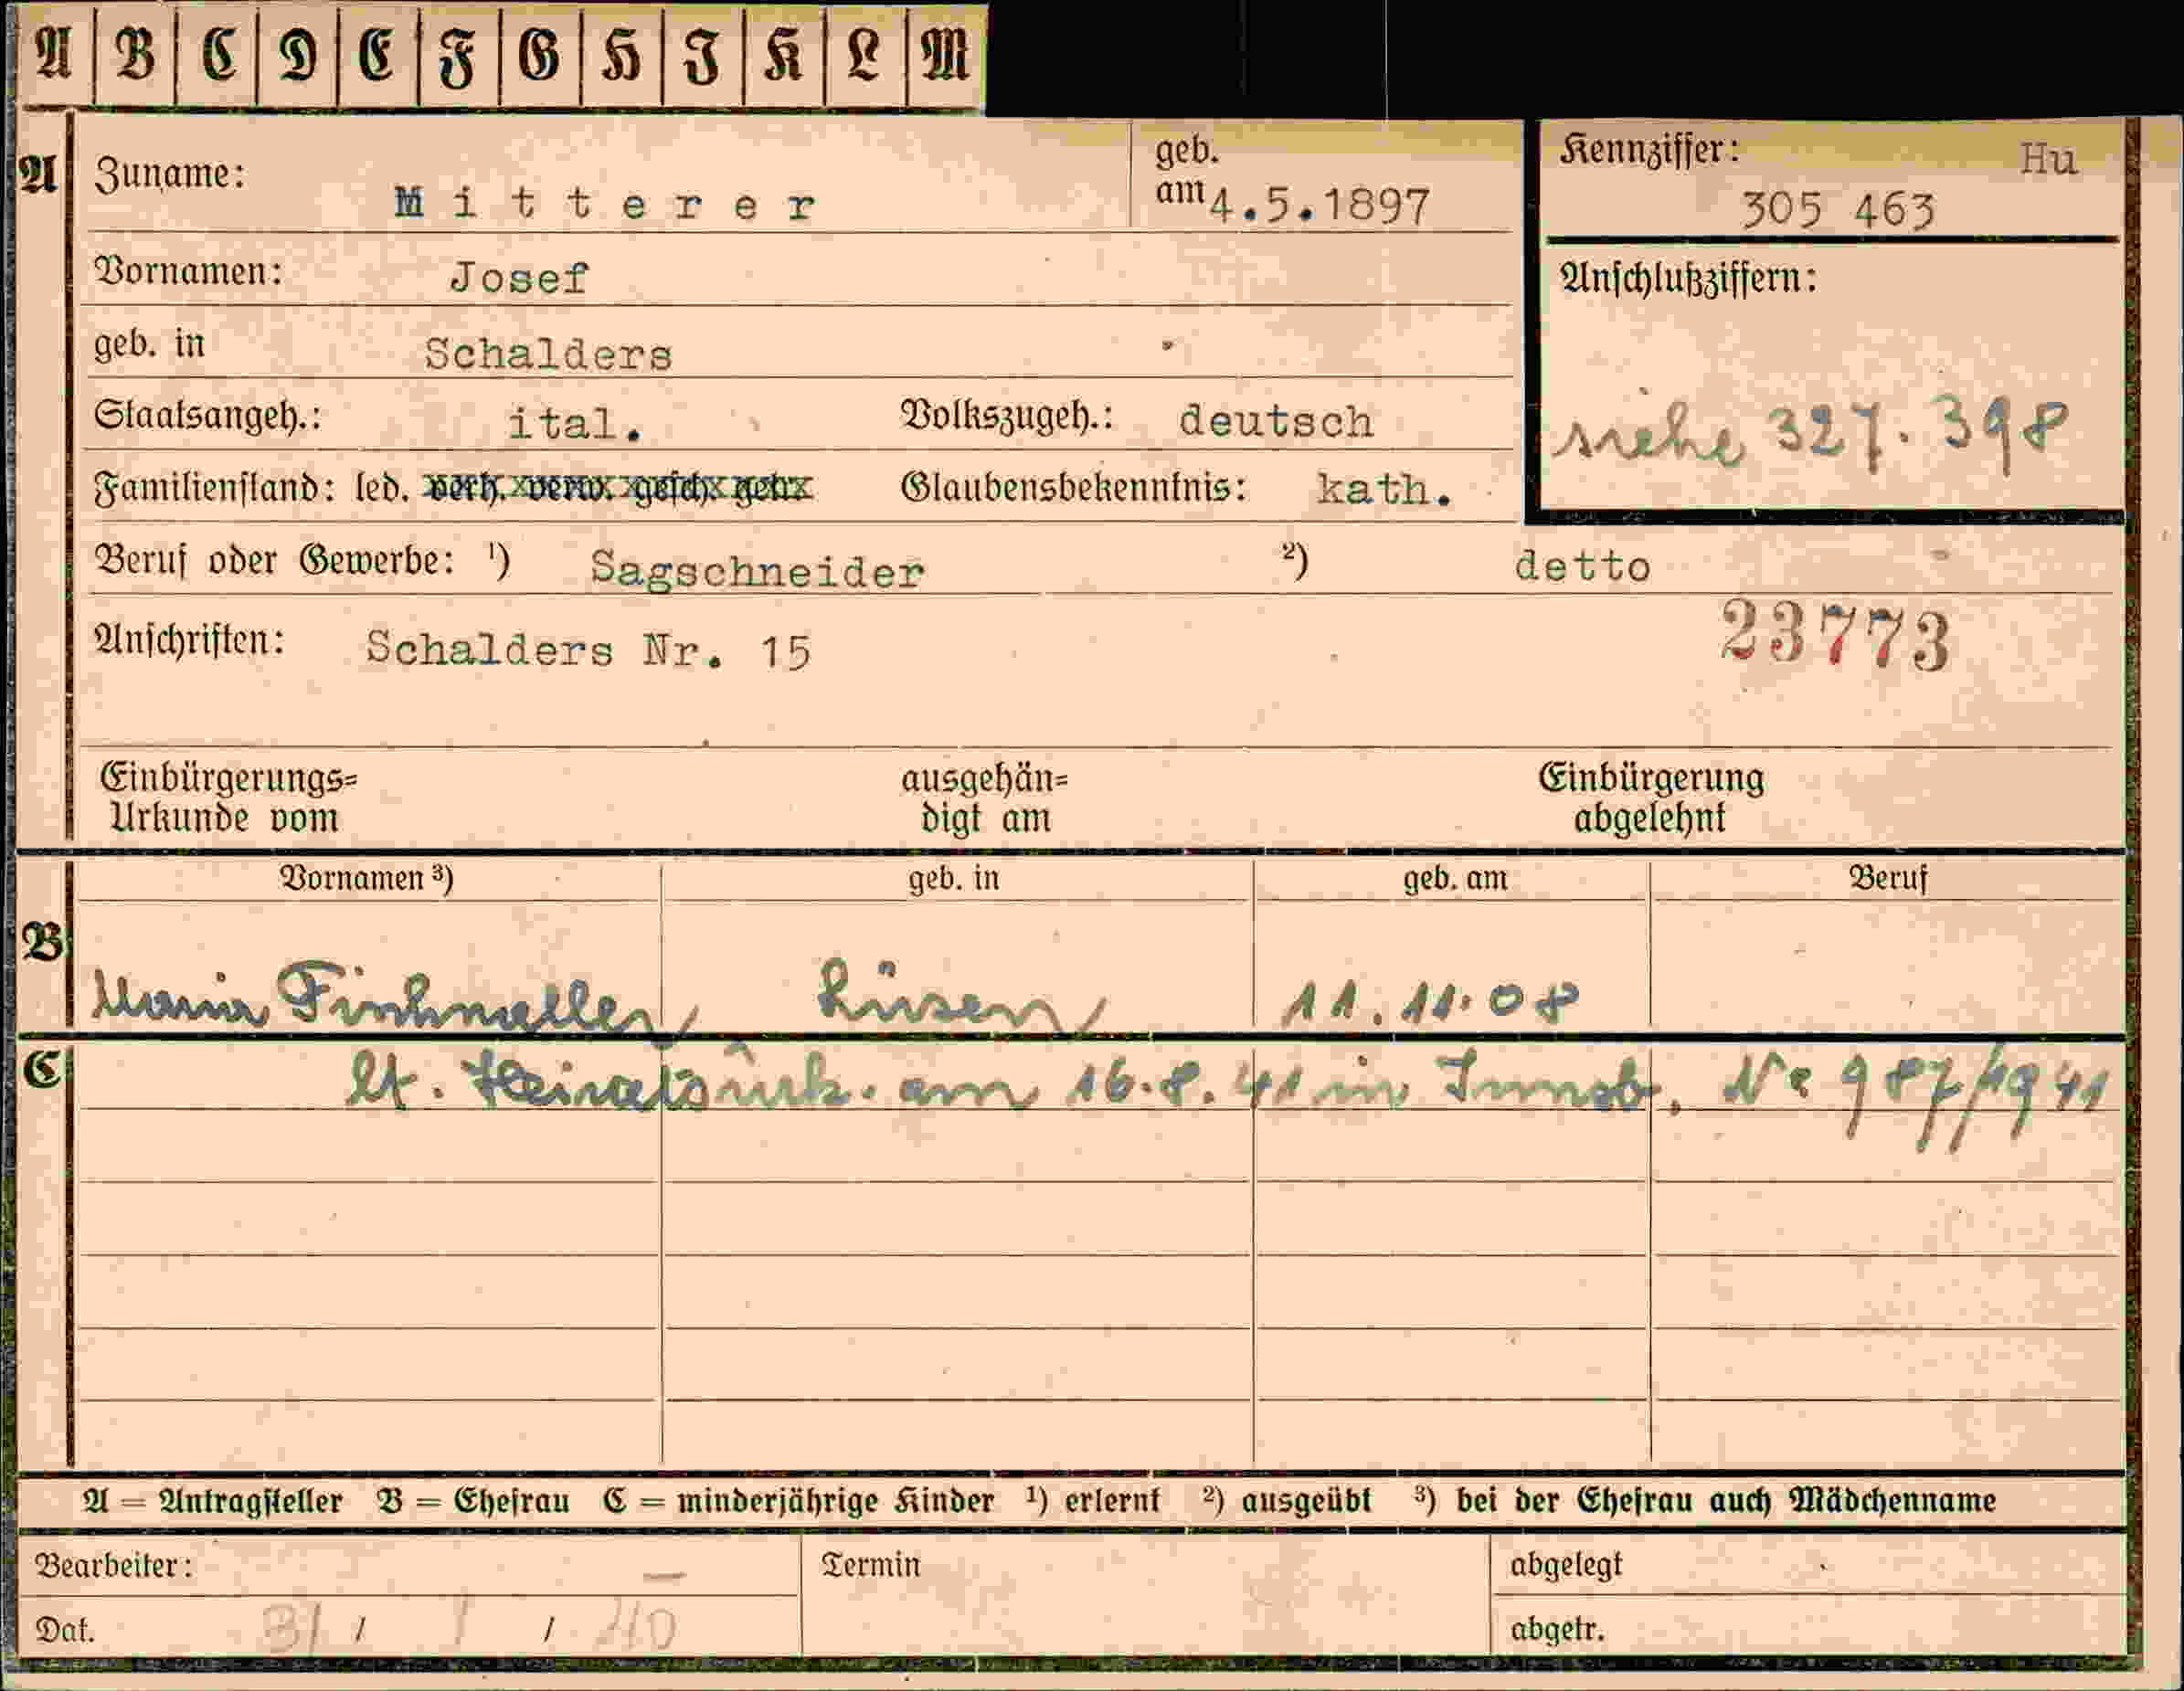 A B C D E F G H J K L M
A Zuname: Mitterer geb. am 4.5.1897 Kennziffer: Hu
305 463
Vornamen: Josef Anschlußziffern:
geb. in Schalders
Staatsangeh.: ital. Volkszugeh.: deutsch siehe 327.398
Familienstand: led. verh. verw. gesch. getr. Glaubensbekenntnis: kath.
Beruf oder Gewerbe: ¹) Sagschneider ²) detto
23773
Anschriften: Schalders Nr. 15
Einbürgerungs= ausgehän= Einbürgerung
Urkunde vom digt am abgelehnt
Vornamen ³) geb. in geb. am Beruf
B Maria Lüsen 11.11.08
C lt. Heiratsurk. am 16.8.41 in Innsb. Nr 987/1941
A = Antragsteller B = Ehefrau C = minderjährige Kinder ¹) erlernt ²) ausgeübt ³) bei der Ehefrau auch Mädchenname
Bearbeiter: — Termin abgelegt
Dat. 31 / 1 / 40 abgetr.